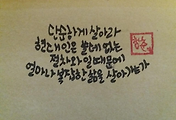 단순하게 살아라
현대인은 쓸데없는
절차와 일 때문에
얼마나 복잡한 삶을 살아가는가